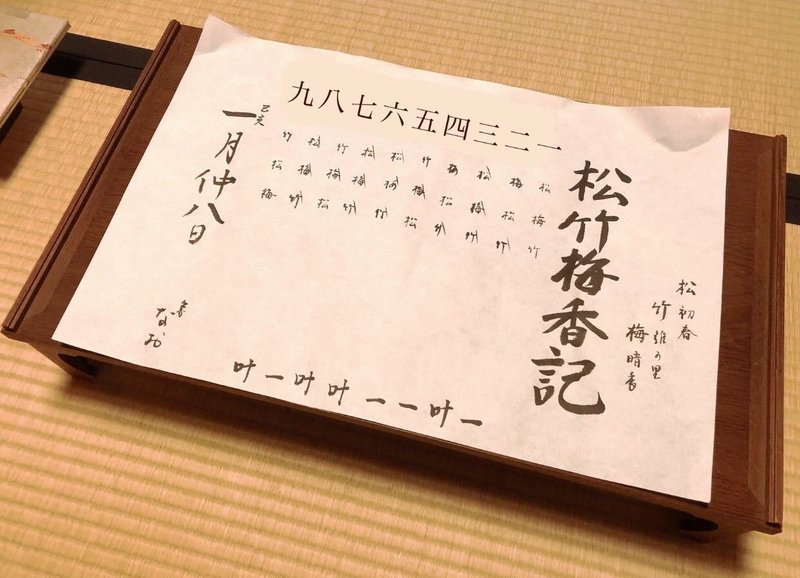 松 初春
竹
梅 暗香
松竹梅香記
一二三四五六七八九
松梅竹
梅松竹
松梅竹
梅松竹
竹梅松
松梅竹
松梅竹
竹梅松
松梅竹
竹松梅
一叶一一叶叶一叶
己亥
一月仲八日
書 なお